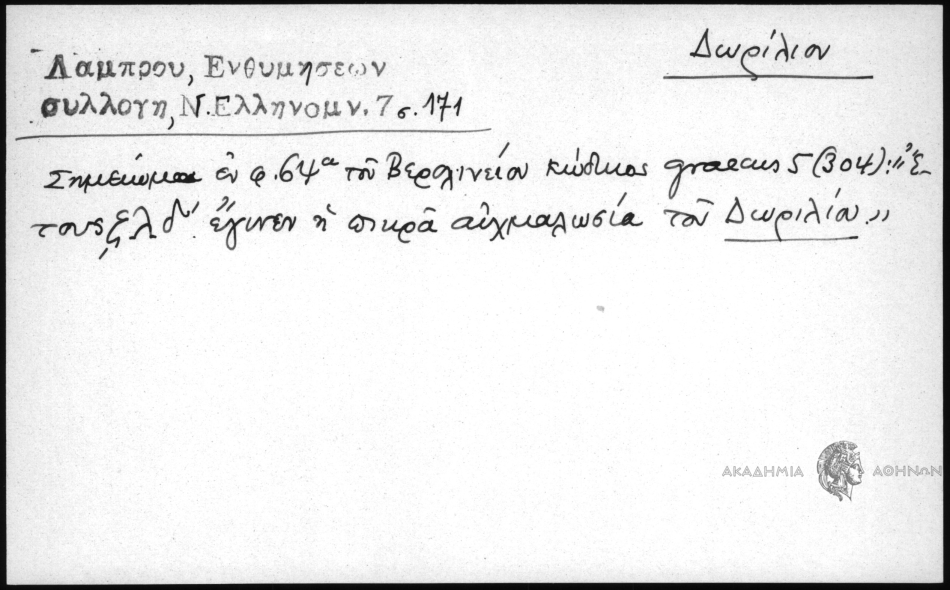 Δωρίλιον
Λαμπρου, Ενθυμησεων
συλλογη, Ν. Ελληνομν. 7 σ. 171
Σημείωμα ἐν φ. 64α τοῦ Βερολινείου κώδικος graecus 5 (304): "Ἔ-
τους ͵ςλδ' ἔγινεν ἡ πικρὰ αἰχμαλωσία τοῦ Δωριλίου."
ΑΚΑΔΗΜΙΑ ΑΘΗΝΩΝ